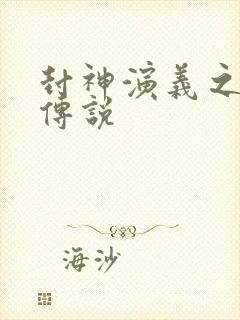 封神演義之
傳説
海沙